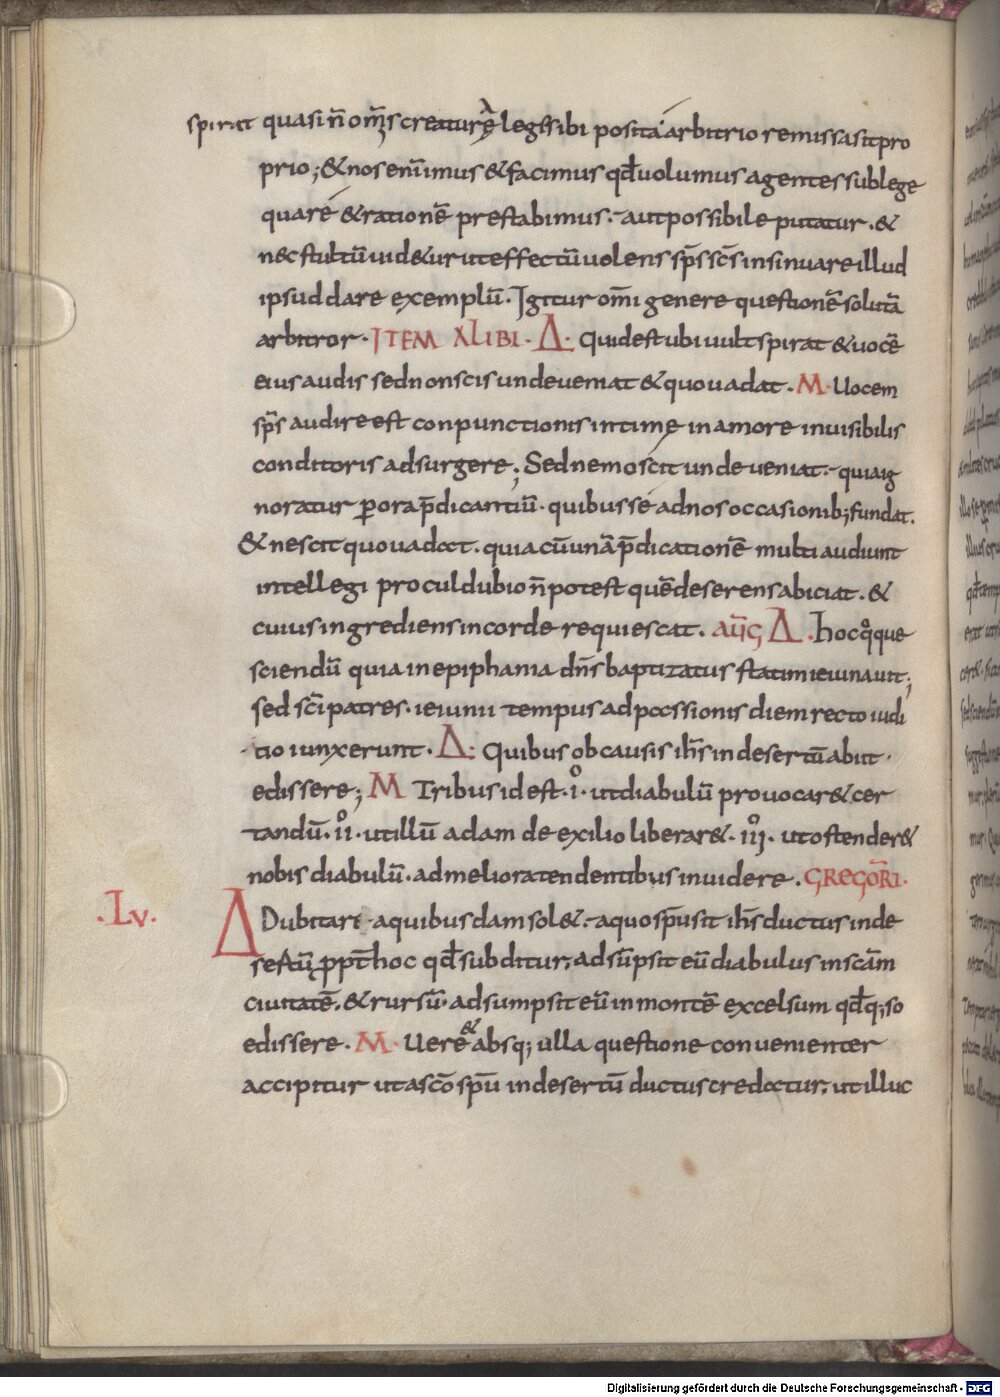 spirat quasi n̄ om̄s creaturę legē sibi posita arbitrio remissa sit pro
prio; & nos enī imus & facimus qd̄ uolumus agentes sub lege
quare & rationē prestabimus. aut possibile putatur. &
nec stultū uid&ur ut effectū uolens sp̄s sc̄s insinuare illud
ipsud dare exemplū. Igitur om̄i genere questionē solutā
arbitror. ITEM ALIBI. Δ. Quid est ubi uult spirat & uocē
eius audis sed non scis unde ueniat & quo uadat. M. Uocem
sp̄s audire est conpunctionis intimę in amore inuisibilis
conditoris adsurgere; Sed nemo scit unde ueniat. quia ig
noratur p ora p̄dicantiū. quibus se ad nos occasionib; fundat.
& nescit quo uadat. quia cū unā p̄dicationē multi audiunt
intellegi procul dubio n̄ potest quē deserens abiciat. &
cuius ingrediens in corde requiescat. aūg Δ. hoc qq̄ue
sciendū quia in epiphania dn̄s baptizatus statim ieiunauit;
sed sc̄i patres. ieiunii tempus ad passionis diem recto iudi
tio iunxerunt. Δ: Quibus ob causis ih̄s in desertū abiit.
edissere; M Tribus id est. i. ut diabulū prouocar& cer
tandū. ii. ut illū adam de exilio liberar&. iii. ut ostender&
nobis diabulū. ad meliora tendentibus inuidere. GREGORI.
.Lv. Δ Dubitari a quibusdam sol&. a quo sp̄u sit ih̄s ductus in de
sertū ppt̄ hoc qd̄ subditur; adsūpsit eū diabulus in sc̄am
ciuitatē. & rursū. adsumpsit eū in montē excelsum qd̄q; so
edissere. M. Uere & absq; ulla questione conuenienter
accipitur ut a sc̄o sp̄u in desertū ductus credatur; ut illuc
Digitalisierung gefördert durch die Deutsche Forschungsgemeinschaft - DFG